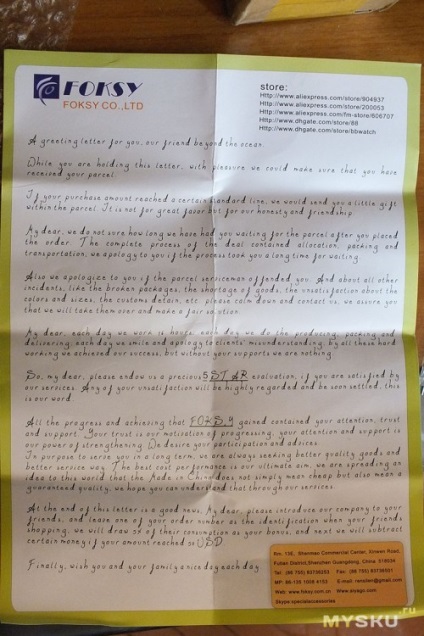 FOKSY
FOKSY CO.,LTD
store:
Http://www.aliexpress.com/store/804937
http://www.aliexpress.com/store/200053
http://www.aliexpress.com/fm-store/806707
http://www.dhgate.com/store/88
http://www.dhgate.com/store/bbwatch
A greeting letter for you, our friend beyond the ocean.
While you are holding this letter, with pleasure we could make sure that you have
received your parcel.
If your purchase amount reached a certain standard line, we would send you a little gift
within the parcel. It is not for great favor but for our honesty and friendship.
My dear, we do not sure how long we have had you waiting for the parcel after you placed
the order. The complete process of the deal contained allocation, packing and
transportation, we apology to you if the process took you a long time for waiting.
Also we apologize to you if the parcel serviceman offended you. And about all other
incidents, like the broken packages, the shortage of goods, the unsatisfaction about the
colors and sizes, the customs detain, etc. please calm down and contact us, we assure you
that we will take them over and make a fair solution.
My dear, each day we work hours, each day we do the producing, packing and
delivering, each day we smile and apology to clients' misunderstanding, by all these hard
working we achieved our success, but without your supports we are nothing.
So, my dear, please endow us a precious 5 STAR evaluation, if you are satisfied by
our services. Any of your unsatisfaction will be highly regarded and be soon settled, this
is our word.
All the progress and achieving that FOKSY gained contained your attention, trust
and support. Your trust is our motivation of progressing, your attention and support is
our power of strengthening. We desire your participation and advices.
In purpose to serve you in a long term, we are always seeking better quality goods and
better service way. The best cost performance is our ultimate aim, we are spreading an
idea to this world that the Made in China does not simply mean cheap but also mean a
guaranteed quality, we hope you can understand that through our services.
At the end of this letter is a good news. My dear, please introduce our company to your
friends, and leave one of your order number as the identification when your friends
shopping, we will draw of their consumption as your bonus, and next we will subtract
certain money if your amount reached USD.
Finally, wish you and your family a nice day each day.
Rm. 13E, Shenmao Commercial Center, Xinwen Road,
Futian District, Shenzhen Guangdong, China. 518034
Web: www.foksy.com.cn
Skype:specialaccessories
MYSKU.ru